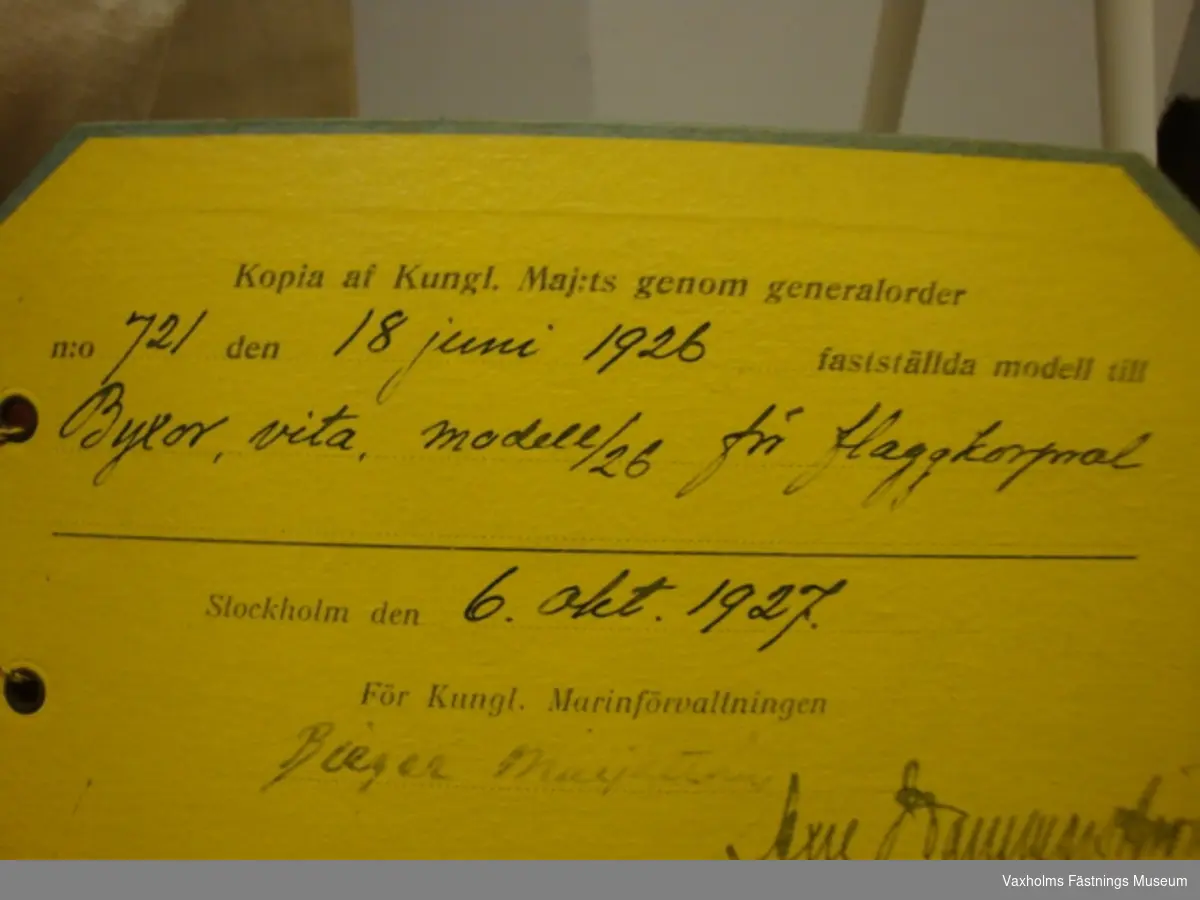 Kopia af Kungl. Maj:ts genom generalorder
n:o 721 den 18 juni 1926 fastställda modell till
Byxor, vita, modell/26 för flaggkorpral
Stockholm den 6. okt. 1927.
För Kungl. Marinförvaltningen
Birger
Vaxholms Fästnings Museum